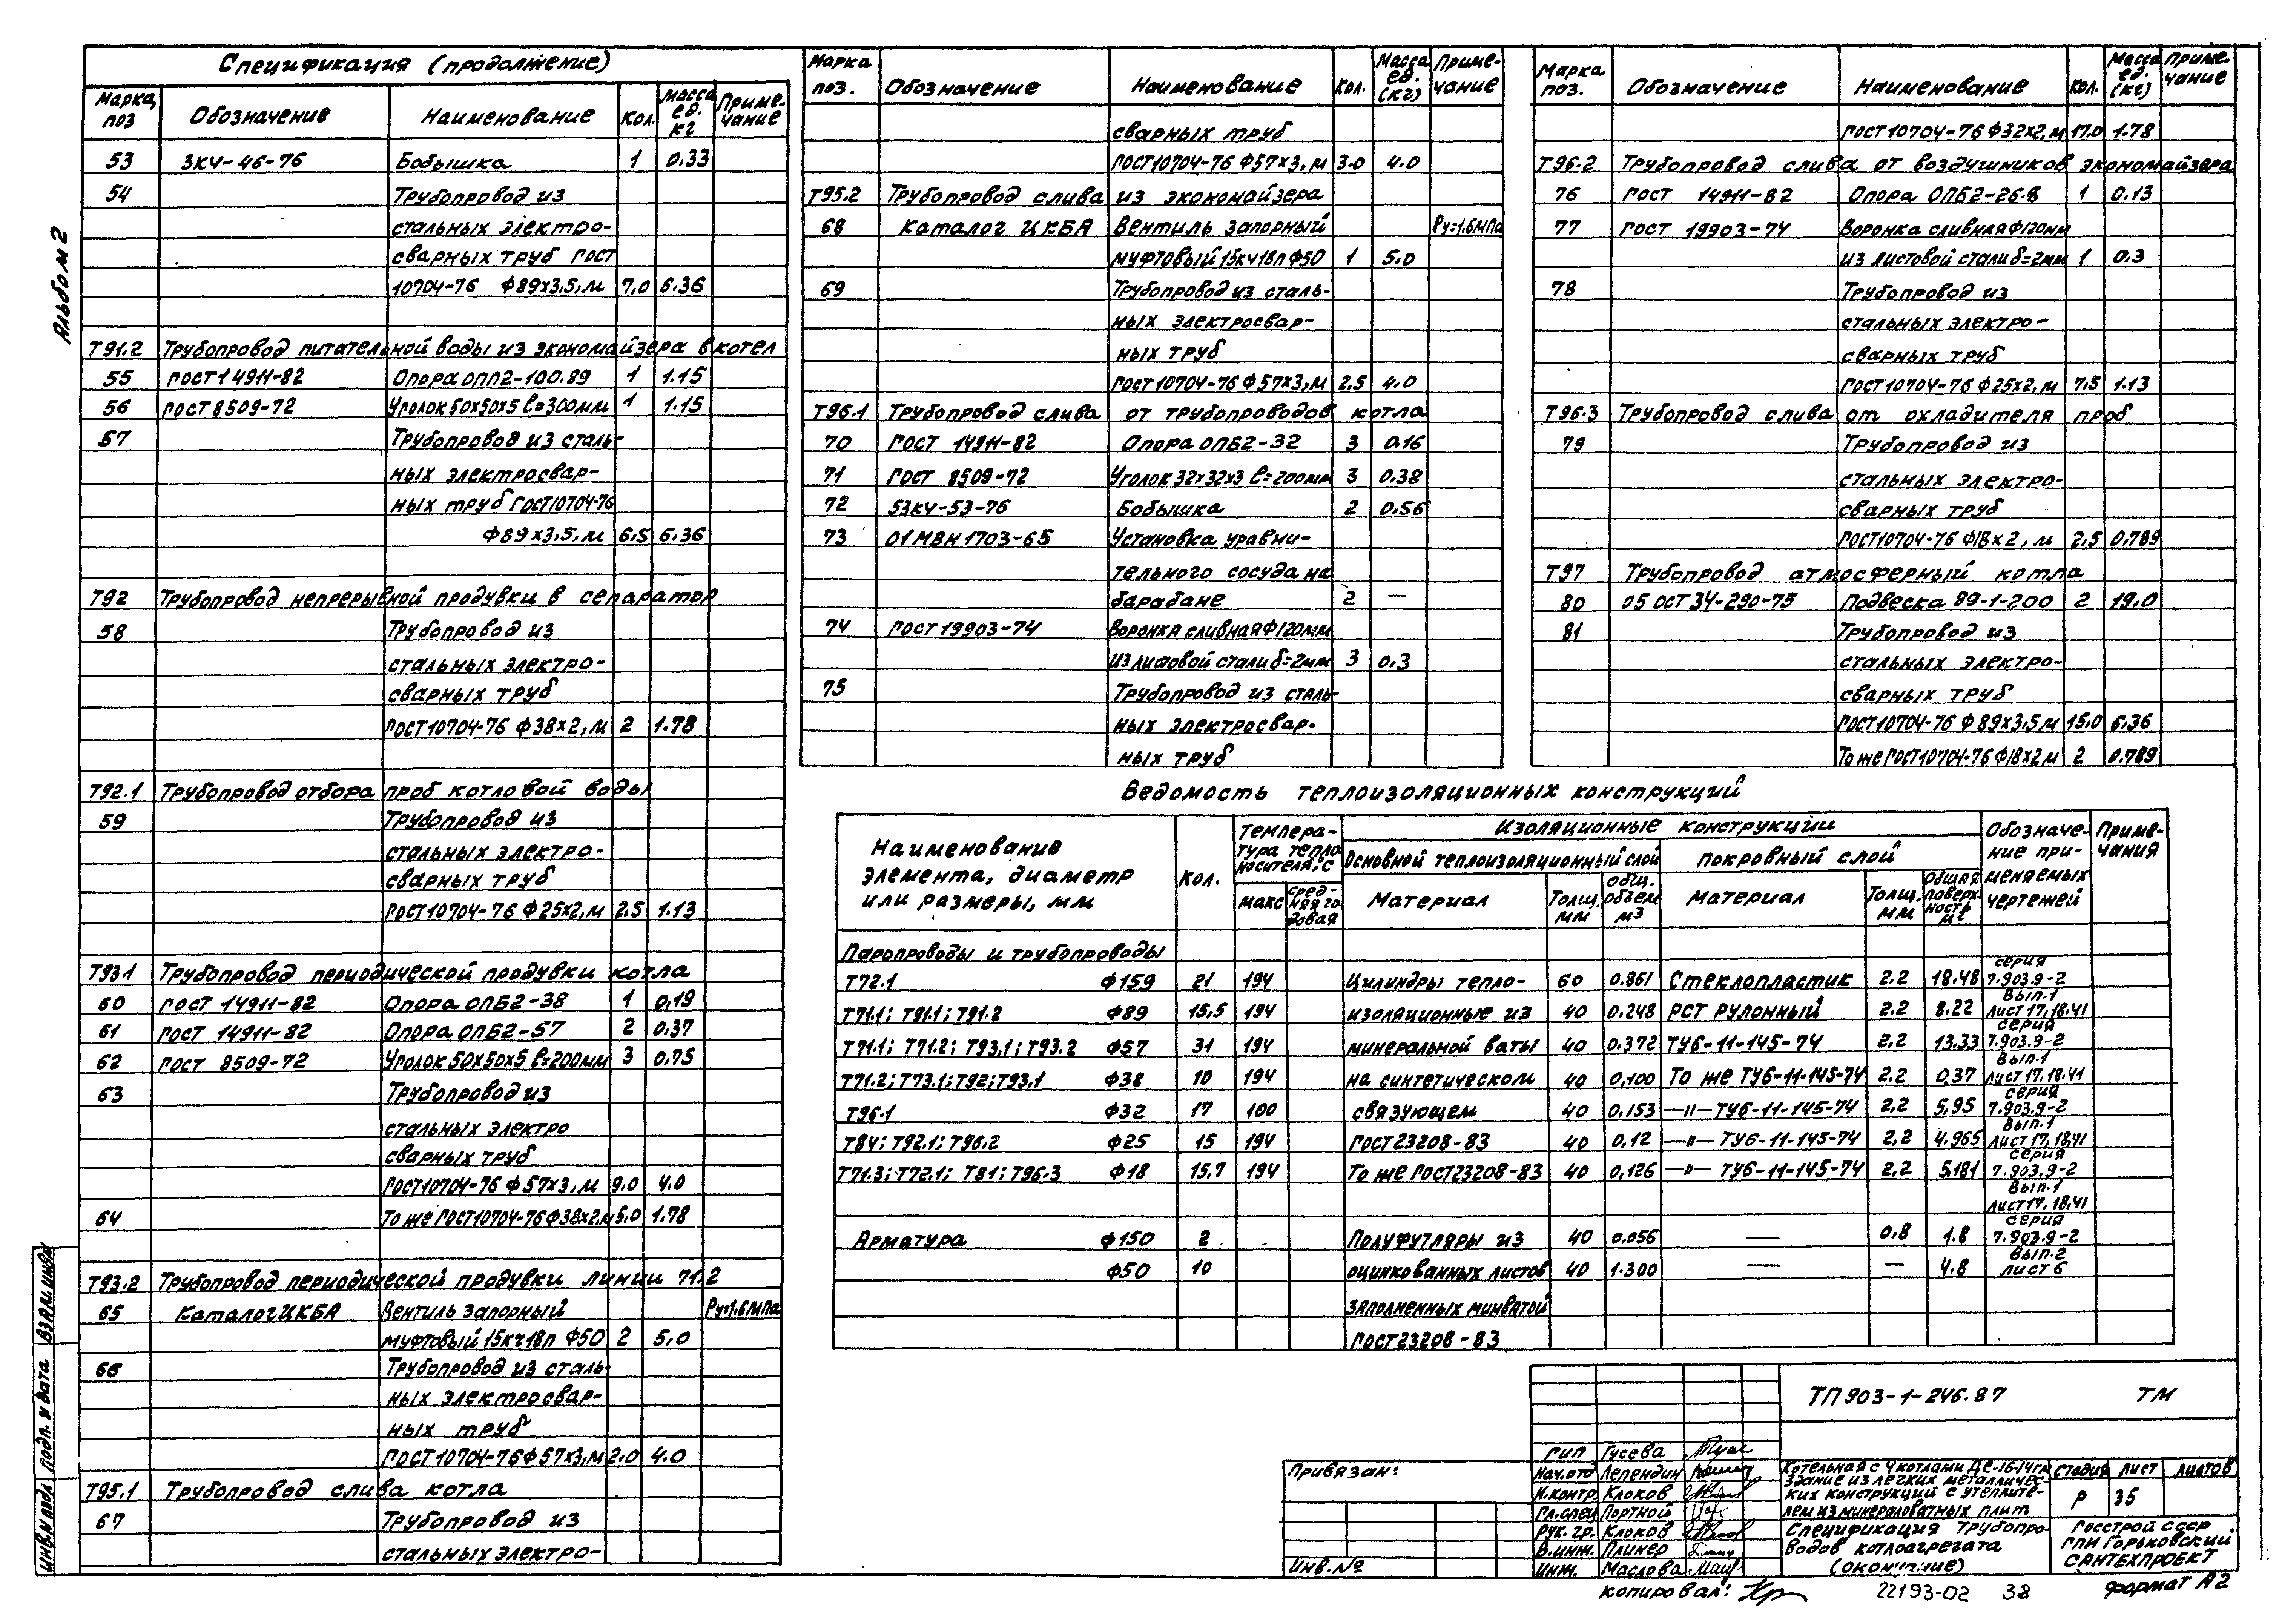 Альбом 2
Спецификация (продолжение)
Марка поз | Обозначение | Наименование | Кол. | Масса ед. кг | Примечание
53 | 3КЧ-46-76 | Бобышка | 1 | 0.33
54 | Трубопровод из
стальных электро-
сварных труб ГОСТ
10704-76 Ф89х3,5, м | 7,0 | 6.36
Т91.2 Трубопровод питательной воды из экономайзера в котел
55 | ГОСТ 14911-82 | Опора ОПП2-100.89 | 1 | 1.15
56 | ГОСТ 8509-72 | Уголок 50х50х5 ℓ=300мм | 1 | 1.15
57 | Трубопровод из сталь-
ных электросвар-
ных труб ГОСТ10704-76
Ф89х3,5, м | 6,5 | 6.36
Т92 Трубопровод непрерывной продувки в сепаратор
58 | Трубопровод из
стальных электро-
сварных труб
ГОСТ10704-76 Ф38х2, м | 2 | 1.78
Т92.1 Трубопровод отбора проб котловой воды
59 | Трубопровод из
стальных электро-
сварных труб
ГОСТ10704-76 Ф25х2, м | 2.5 | 1.13
Т93.1 Трубопровод периодической продувки котла
60 | ГОСТ 14911-82 | Опора ОПБ2-38 | 1 | 0,19
61 | ГОСТ 14911-82 | Опора ОПБ2-57 | 2 | 0.37
62 | ГОСТ 8509-72 | Уголок 50х50х5 ℓ=200мм | 3 | 0,75
63 | Трубопровод из
стальных электро
сварных труб
ГОСТ10704-76 Ф57х3, м | 9.0 | 4.0
64 | То же ГОСТ10704-76 Ф38х2, м | 5,0 | 1.78
Т93.2 Трубопровод периодической продувки линии 71.2
65 | Каталог ЦКБА | Вентиль запорный | Ру=1.6МПа
муфтовый 15кч18п Ф50 | 2 | 5,0
66 | Трубопровод из сталь-
ных электросвар-
ных труб
ГОСТ10704-76 Ф57х3, м | 2.0 | 4.0
Т95.1 Трубопровод слива котла
67 | Трубопровод из
стальных электро-
Марка поз. | Обозначение | Наименование | Кол. | Масса ед. (кг) | Примечание
сварных труб
ГОСТ10704-76 Ф57х3, м | 3.0 | 4.0
Т95.2 Трубопровод слива из экономайзера
68 | Каталог ЦКБА | Вентиль запорный | Ру=1.6МПа
муфтовый 15кч18п Ф50 | 1 | 5.0
69 | Трубопровод из сталь-
ных электросвар-
ных труб
ГОСТ10704-76 Ф57х3, м | 2.5 | 4.0
Т96.1 Трубопровод слива от трубопроводов котла
70 | ГОСТ 14911-82 | Опора ОПБ2-32 | 3 | 0.16
71 | ГОСТ 8509-72 | Уголок 32х32х3 ℓ=200мм | 3 | 0.38
72 | 53КЧ-53-76 | Бобышка | 2 | 0.56
73 | 01МВН1703-65 | Установка уравни-
тельного сосуда на
барабане | 2 | —
74 | ГОСТ 19903-74 | Воронка сливная Ф120мм
из листовой стали б=2мм | 3 | 0.3
75 | Трубопровод из сталь-
ных электросвар-
ных труб
Марка поз. | Обозначение | Наименование | Кол. | Масса ед. (кг) | Примечание
ГОСТ10704-76 Ф32х2, м | 17.0 | 1.78
Т96.2 Трубопровод слива от воздушников экономайзера
76 | ГОСТ 14911-82 | Опора ОПБ2-26.8 | 1 | 0.13
77 | ГОСТ 19903-74 | Воронка сливная Ф120мм
из листовой стали б=2мм | 1 | 0.3
78 | Трубопровод из
стальных электро-
сварных труб
ГОСТ10704-76 Ф25х2, м | 7,5 | 1.13
Т96.3 Трубопровод слива от охладителя проб
79 | Трубопровод из
стальных электро-
сварных труб
ГОСТ10704-76 Ф18х2, м | 2,5 | 0.789
Т97 Трубопровод атмосферный котла
80 | 05 ОСТ 34-290-75 | Подвеска 89-1-200 | 2 | 19.0
81 | Трубопровод из
стальных электро-
сварных труб
ГОСТ10704-76 Ф89х3,5 м | 15.0 | 6.36
То же ГОСТ10704-76 Ф18х2 м | 2 | 0.789
Ведомость теплоизоляционных конструкций
Наименование элемента, диаметр или размеры, мм | Кол. | Температура теплоносителя, °С | Изоляционные конструкции | Обозначение применяемых чертежей | Примечания
Основной теплоизоляционный слой | Покровный слой
макс | среднягодовая | Материал | Толщ. мм | Общ. объем м3 | Материал | Толщ. мм | Общая поверхность м2
Паропроводы и трубопроводы
Т72.1 Ф159 | 21 | 194 | Цилиндры тепло- | 60 | 0.861 | Стеклопластик | 2.2 | 18.48 | серия 7.903.9-2
Т71.1; Т91.1; Т91.2 Ф89 | 15,5 | 194 | изоляционные из | 40 | 0.248 | РСТ рулонный | 2.2 | 8.22 | Вып.1 лист 17,18,41
Т71.1; Т71.2; Т93,1; Т93.2 Ф57 | 31 | 194 | минеральной ваты | 40 | 0.372 | ТУ6-11-145-74 | 2,2 | 13.33 | серия 7.903.9-2
Т71.2; Т73.1; Т92; Т93,1 Ф38 | 10 | 194 | на синтетическом | 40 | 0,100 | То же ТУ6-11-145-74 | 2.2 | 0,37 | Вып.1 лист 17,18,41
Т96.1 Ф32 | 17 | 100 | связующем | 40 | 0,153 | —"— ТУ6-11-145-74 | 2,2 | 5,95 | серия 7.903.9-2
Т84; Т92.1; Т96.2 Ф25 | 15 | 194 | ГОСТ 23208-83 | 40 | 0,12 | —"— ТУ6-11-145-74 | 2,2 | 4.965 | Вып.1 лист 17,18,41
Т71.3; Т72.1; Т81; Т96.3 Ф18 | 15,7 | 194 | То же ГОСТ23208-83 | 40 | 0,126 | —"— ТУ6-11-145-74 | 2,2 | 5,181 | серия 7.903.9-2
Вып.1
лист 17, 18,41
Арматура Ф150 | 2 | Полуфутляры из | 40 | 0.056 | — | 0.8 | 1.8 | серия 7.903.9-2
Ф50 | 10 | оцинкованных листов | 40 | 1.300 | — | — | 4.8 | Вып.2 лист 6
заполненных минватой
ГОСТ23208-83
ТП 903-1-246.87 ТМ
Привязан:
Инв.№
ГИП Гусева
Нач.отд Лепендин
Н.контр. Клоков
Гл.спец Портной
Рук. гр. Клоков
В.инж. Плинер
Инж. Маслова
Котельная с 4 котлами ДЕ-16-14гм
здание из легких металличес-
ких конструкций с утеплите-
лем из минераловатных плит
Стадия | Лист | Листов
Р | 35
Спецификация трубопро-
водов котлоагрегата
(окончание)
Госстрой СССР
ГПИ Горьковский
САНТЕХПРОЕКТ
Копировал:
22193-02 38
формат А2
Инв.№ подл
Подп. и дата
Взам. инв.№